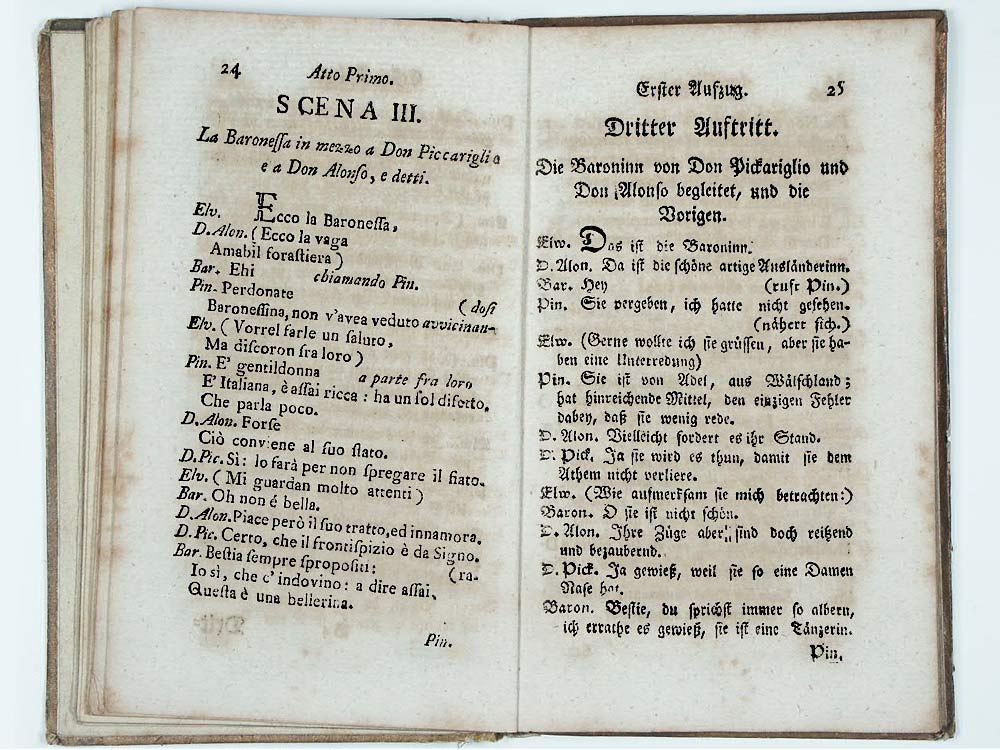 24 Atto Primo.
SCENA III.
La Baroneſſa in mezzo a Don Piccariglio
e a Don Alonſo, e detti.
Elv. Ecco la Baroneſſa,
D. Alon. (Ecco la vaga
Amabil foraſtiera)
Bar. Ehi chiamando Pin.
Pin. Perdonate (doſi
Baroneſſina, non v'avea veduto avvicinan-
Elv. (Vorrei farle un ſaluto,
Ma diſcoron fra loro)
Pin. E' gentildonna a parte fra loro
E' Italiana, è aſſai ricca: ha un ſol difetto,
Che parla poco.
D. Alon. Forſe
Ciò conviene al ſuo ſtato.
D. Pic. Sì: lo farà per non ſpregare il fiato.
Elv. (Mi guardan molto attenti)
Bar. Oh non é bella.
D. Alon. Piace però il ſuo tratto, ed innamora.
D. Pic. Certo, che il frontiſpizio è da Signo.
Bar. Beſtia ſempre ſpropoſiti: (ra-
Io sì, che c'indovino: a dire aſſai,
Queſta è una bellerina.
Pin.
Erſter Aufzug. 25
Dritter Auftritt.
Die Baroninn von Don Pickariglio und
Don Alonſo begleitet, und die
Vorigen.
Elw. Das iſt die Baroninn.
D. Alon. Da iſt die ſchöne artige Ausländerinn.
Bar. Hey (ruft Pin.)
Pin. Sie vergeben, ich hatte nicht geſehen.
(nähert ſich.)
Elw. (Gerne wollte ich ſie grüſſen, aber ſie ha-
ben eine Unterredung)
Pin. Sie iſt von Adel, aus Wälſchland;
hat hinreichende Mittel, den einzigen Fehler
dabey, daß ſie wenig rede.
D. Alon. Vielleicht fordert es ihr Stand.
D. Pick. Ja ſie wird es thun, damit ſie dem
Athem nicht verliere.
Elw. (Wie aufmerkſam ſie mich betrachten:)
Baron. O ſie iſt nicht ſchön.
D. Alon. Ihre Züge aber ſind doch reißend
und bezaubernd.
D. Pick. Ja gewieß, weil ſie ſo eine Damen
Naſe hat.
Baron. Beſtie, du ſprichſt immer ſo albern,
ich errathe es gewieß, ſie iſt eine Tänzerin.
Pin.